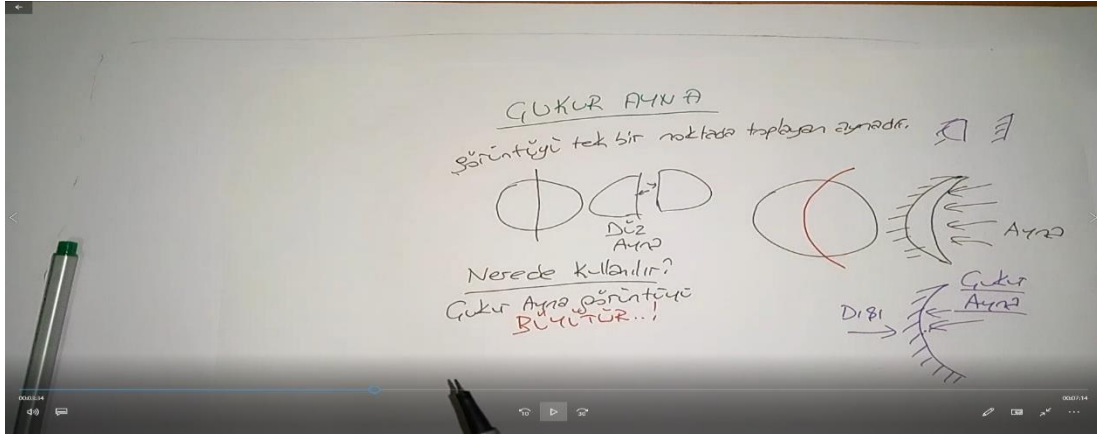 ÇUKUR AYNA
görüntüyü tek bir noktada toplayan aynadır.
Düz
Ayna
Ayna
Nerede Kullanılır?
Çukur Ayna görüntüyü
BÜYÜTÜR..!
Çukur
Ayna
DIŞI
00:03:34
00:07:14
10
30